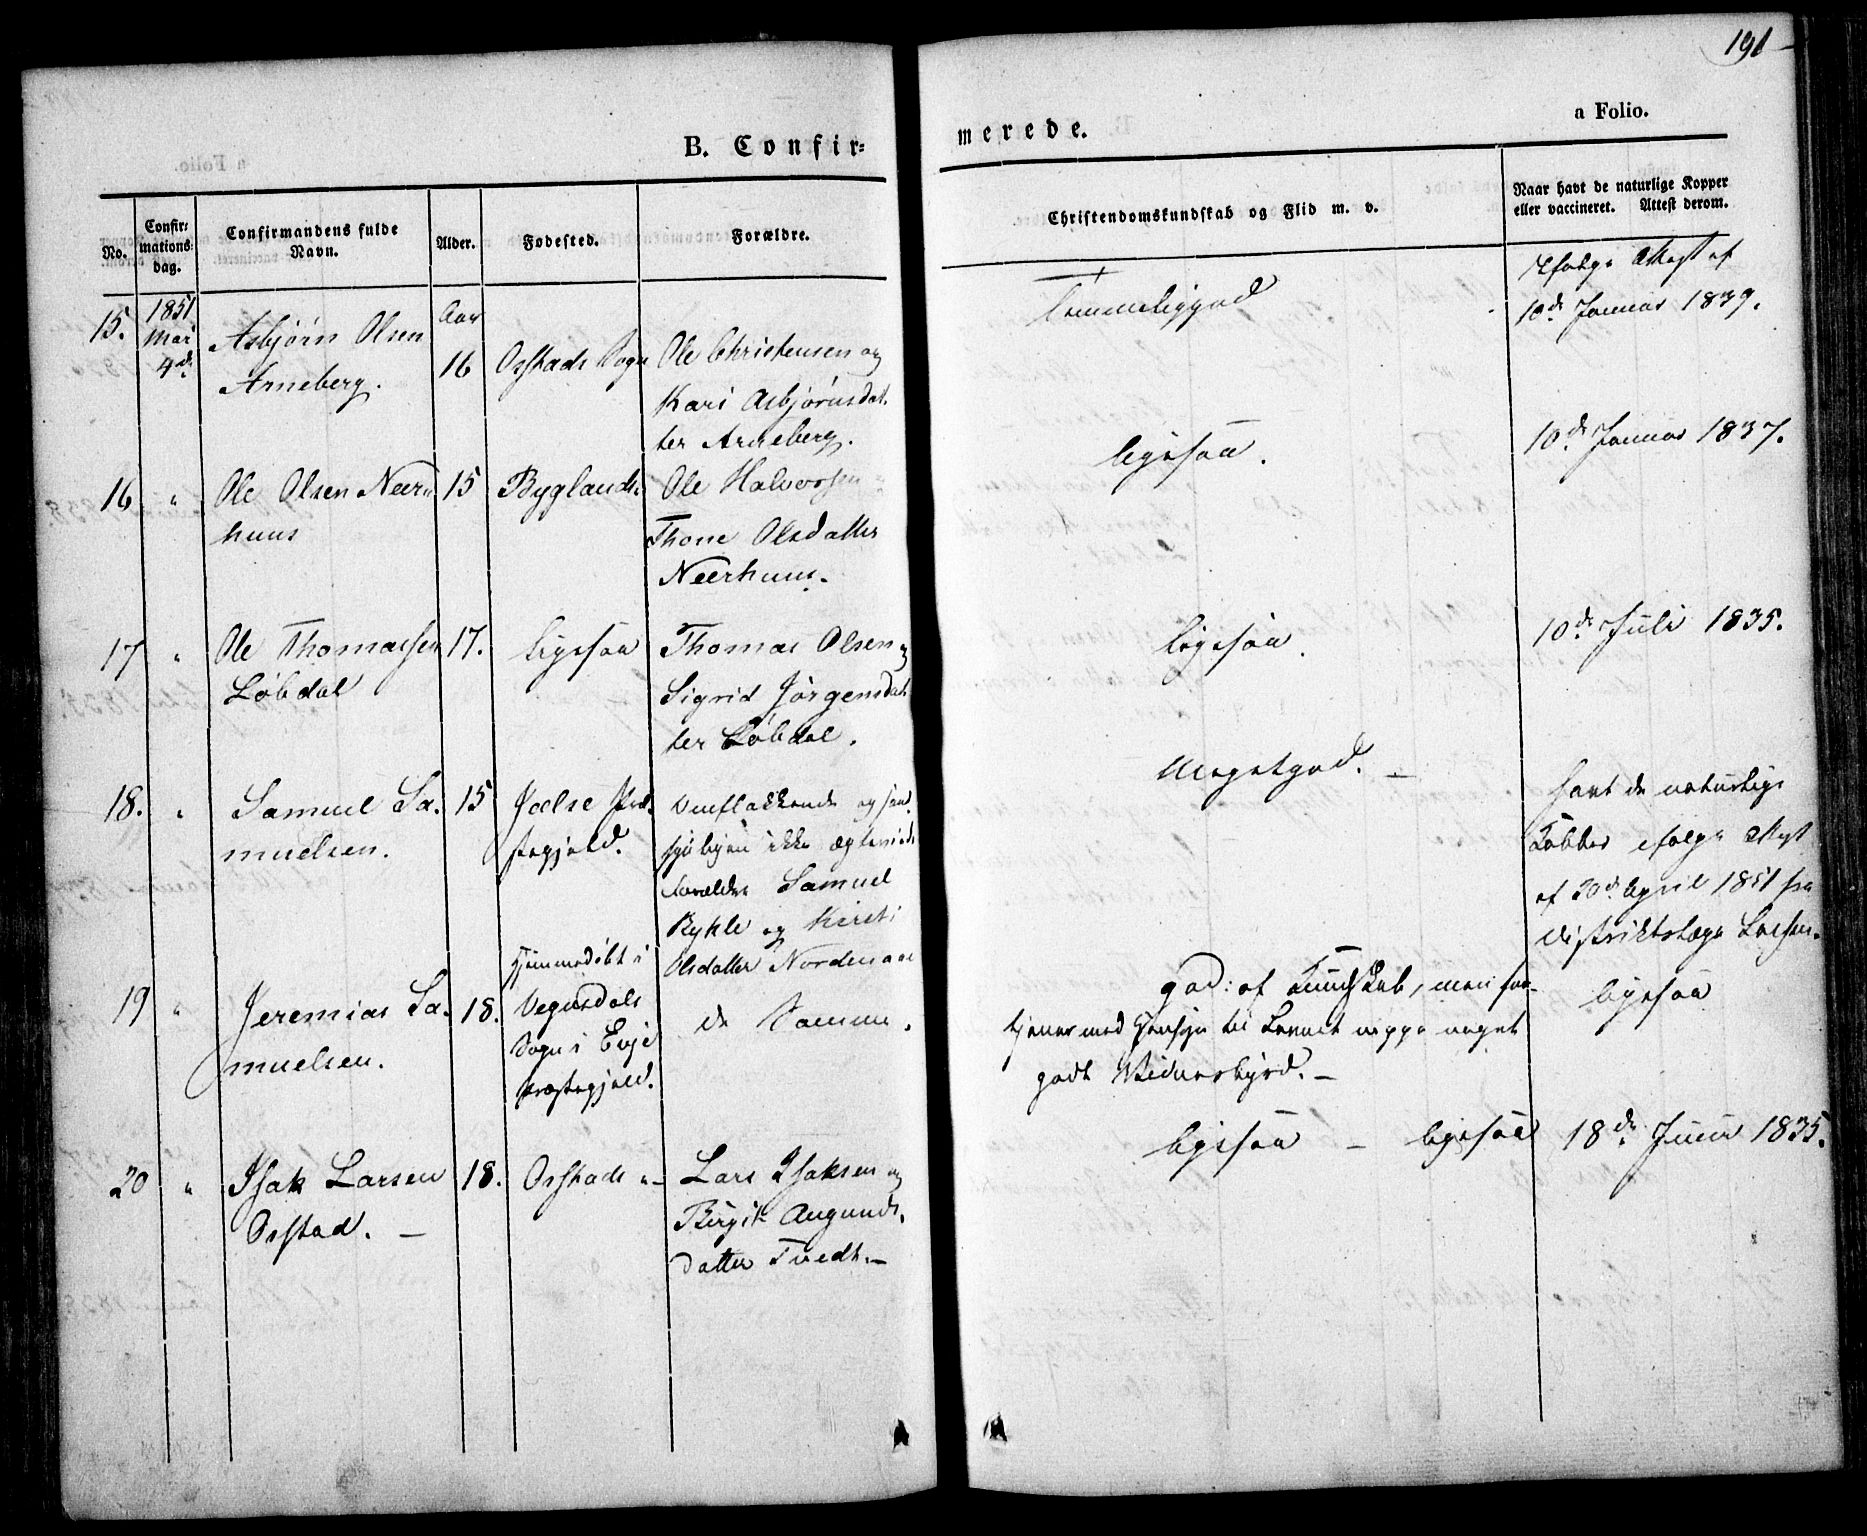 191
a Folio.
B. Confir=
merede.
No.
Confir=
mations=
dag.
Confirmandens fulde
Navn.
Alder.
Fødested.
Forældre.
Christendomskundskab og Flid m. v.
Naar havt de naturlige Kopper
eller vaccineret. Attest derom.
15.
1851
Mai
4de
Asbjørn Olsen
Arneberg.
Aar
16
Osstads Sogn
Ole Christensen og
Kari Asbjørnsdat-
ter Arneberg.
Temmeliggod
Ifølge Attest af
10de Januar 1839.
16
"
Ole Olsen Neer-
huus
15
Byglands
Ole Halvorsen
Thone Olsdatter
Neerhuus.
ligesaa.
10de Januar 1837.
17
"
Ole Thomassen
Løbdal
17.
ligesaa
Thomas Olsen og
Sigrid Jörgensdat
ter Løbdal.
ligesaa.
10de Juli 1835.
18.
"
Samuel Sa-
muelsen.
15
Præ-
stegjeld.
Omflakkende og
ikke ægteviede
Forældre Samuel
Bykle og Kirsti
Olsdatter Nordenaae
Megetgod. –
havt de naturlige
Kobber ifølge Attest
af 30de April 1851 fra
Distriktslæge
19
"
Jeremias Sa-
muelsen.
18.
Hjemmedøbt i
Vegusdals
Sogn i Evje
Præstegjeld.
de Samme.
god: af Kundskab, men for-
tjener med Hensyn til Levnet neppe noget
godt Vidnesbyrd. –
ligesaa
20
"
Isak Larsen
Osstad. –
18.
Osstads "–
Lars Isaksen og
Birgit Augunds-
datter Tvedt. –
ligesaa – ligesaa
18de Juni 1835.